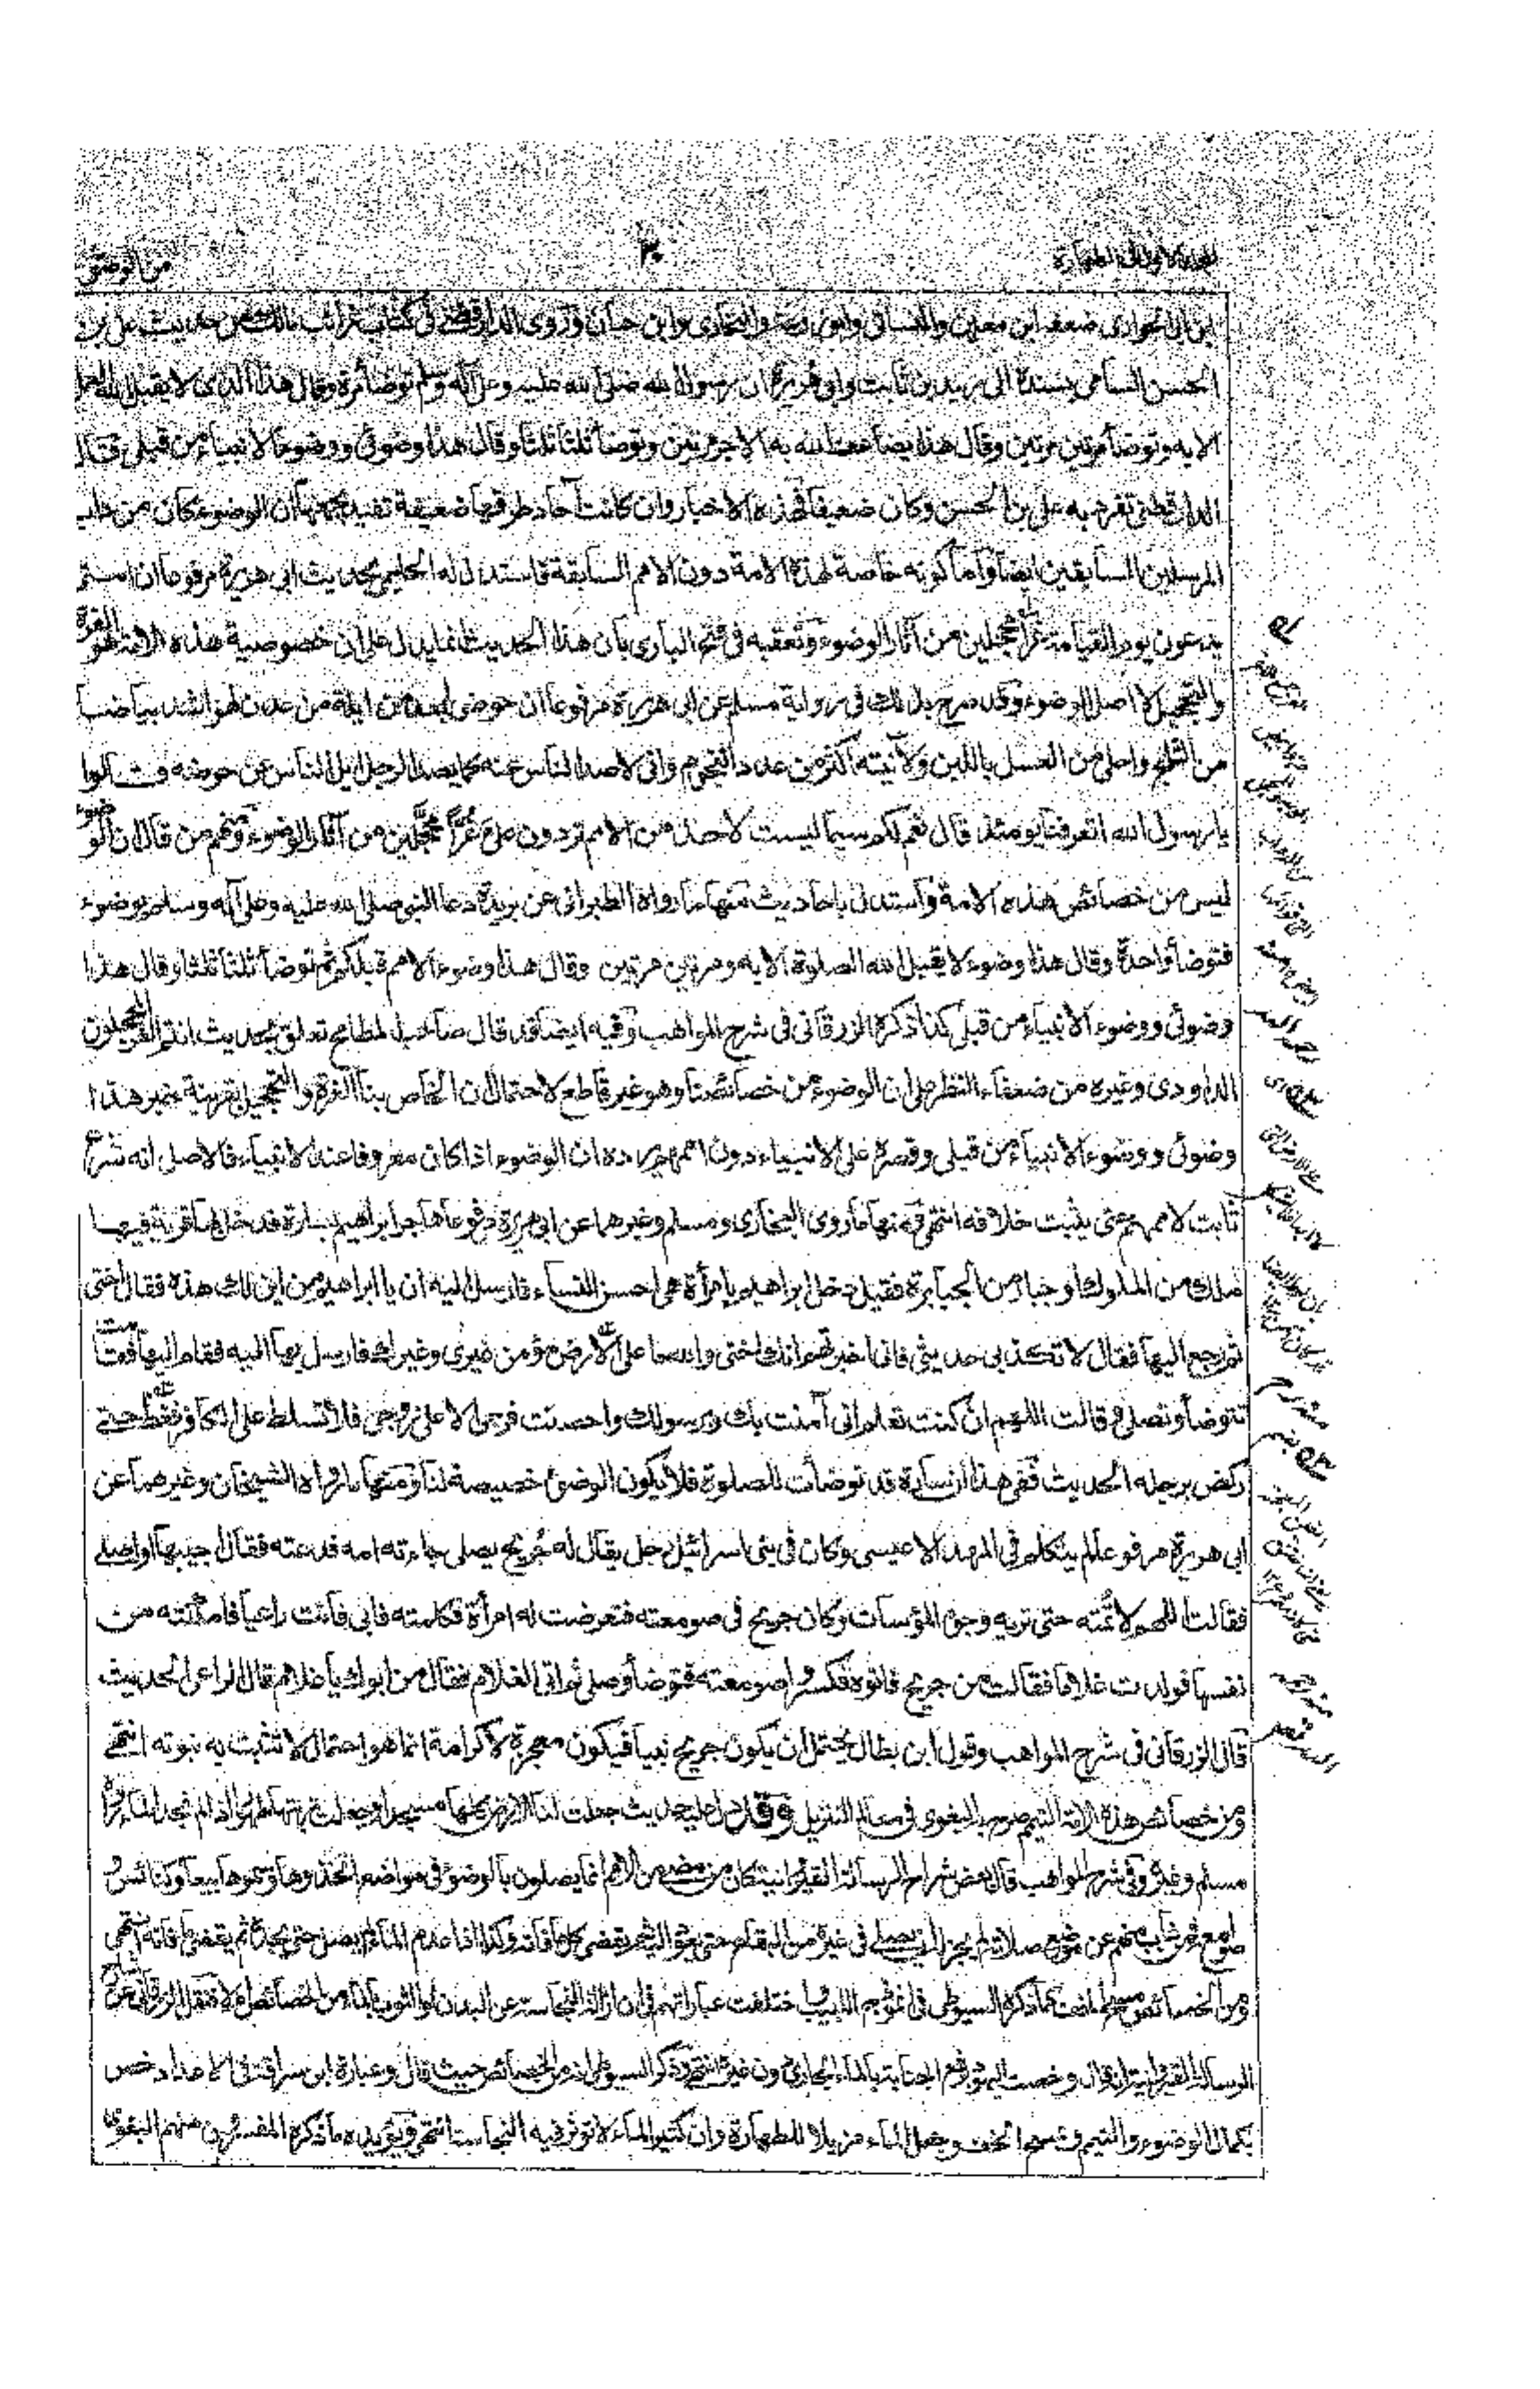 ٣٠
من الوضوء
ابن ابى الحوارى ضعفه ابن معين والنسائى وابن حبان وروى الدارقطنى فى كتاب غرائب مالك من حديث على بن
الحسن السامى بسنده الى زيد بن ثابت وابى هريرة ان رسول الله صلى الله عليه وعلى آله وسلم توضأ مرة وقال هذا الذى لا يقبل الله العمل
الا به وتوضأ مرتين مرتين وقال هذا يضاعف الله به الاجر مرتين وتوضأ ثلثا ثلثا وقال هذا وضوئى ووضوء الانبياء من قبلى وقال
الدارقطنى تفرد به على بن الحسن وكان ضعيفا فهذه الاخبار وان كانت آحاد طرقها ضعيفة تفيد بجمعها ان الوضوء كان من
المرسلين السابقين ايضا واما كونه خاصة لهذه الامة دون الامم السابقة فاستدل له الحليمى بحديث ابى هريرة مرفوعا ان امتى
يدعون يوم القيامة غرا محجلين من آثار الوضوء وتعقبه فى فتح البارى بان هذا الحديث انما يدل على ان خصوصية هذه الامة هو الغرة
والتحجيل لا اصل الوضوء وقد صرح بذلك فى رواية مسلم عن ابى هريرة مرفوعا ان حوضى ابعد من ايلة من عدن لهو اشد بياضا
من الثلج واحلى من العسل باللبن ولآنيته اكثر من عدد النجوم وانى لاصد الناس عنه كما يصد الرجل ابل الناس عن حوضه قالوا
يا رسول الله اتعرفنا يومئذ قال نعم لكم سيما ليست لاحد من الامم تردون على غرا محجلين من آثار الوضوء ومنهم من قال ان الوضوء
ليس من خصائص هذه الامة واستدل باحاديث منها ما رواه الطبرانى عن بريدة دعا النبى صلى الله عليه وعلى آله وسلم بوضوء
فتوضأ واحدة وقال هذا وضوء لا يقبل الله الصلوة الا به ومرتين مرتين وقال هذا وضوء الامم قبلكم ثم توضأ ثلثا ثلثا وقال هذا
وضوئى ووضوء الانبياء من قبلى كذا ذكره الزرقانى فى شرح المواهب وفيه ايضا قد قال صاحب المطامح تعلق بحديث انتم الغر المحجلون
الداودى وغيره من ضعفاء النظر على ان الوضوء من خصائصنا وهو غير قاطع لاحتمال ان الخاص بنا الغرة والتحجيل بقرينة خبر هذا
وضوئى ووضوء الانبياء من قبلى وقصره على الانبياء دون اممهم يرده ان الوضوء اذا كان معروفا عند الانبياء فالاصل انه شرع
ثابت لاممهم حتى يثبت خلافه انتهى ومنها ما روى البخارى ومسلم وغيرهما عن ابى هريرة مرفوعا هاجر ابراهيم بسارة فدخل بها قرية فيها
ملك من الملوك او جبار من الجبابرة فقيل دخل ابراهيم بامرأة هى احسن النساء فارسل اليه ان يا ابراهيم من اين لك هذه فقال اختى
ثم رجع اليها فقال لا تكذبى حديثى فانى اخبرتهم انك اختى والله ما على الارض مؤمن غيرى وغيرك فارسل بها اليه فقام اليها فقامت
تتوضأ وتصلى وقالت اللهم ان كنت تعلم انى آمنت بك وبرسولك واحصنت فرجى الا على زوجى فلا تسلط على الكافر فغط حتى
ركض برجله الحديث ففى هذا ان سارة قد توضأت للصلوة فلا يكون الوضوء خصيصة لنا ومنها ما رواه الشيخان وغيرهما عن
ابى هريرة مرفوعا لم يتكلم فى المهد الا عيسى وكان فى بنى اسرائيل رجل يقال له جريج يصلى جاءته امه فدعته فقال اجيبها او اصلى
فقالت اللهم لا تمته حتى تريه وجوه المومسات وكان جريج فى صومعته فتعرضت له امرأة فكلمته فابى فاتت راعيا فامكنته من
نفسها فولدت غلاما فقالت من جريج فاتوه فكسروا صومعته فتوضأ وصلى ثم اتى الغلام فقال من ابوك يا غلام قال الراعى الحديث
قال الزرقانى فى شرح المواهب وقول ابن بطال يحتمل ان يكون جريج نبيا فيكون معجزة لا كرامة انما هو احتمال لا تثبت به نبوته انتهى
ومن خصائص هذه الامة التيمم صرح به البغوى فى معالم التنزيل وقد دل عليه حديث جعلت لنا الارض كلها مسجدا وجعلت تربتها طهورا اذا لم نجد الماء رواه
مسلم وغيره وفى شرح المواهب قال بعض شراح الرسالة القيروانية كان من مضى من الامم انما يصلون بالوضوء فى مواضع اتخذوها وسموها بيعا وكنائس و
صوامع فمن غاب منهم عن موضع صلاته لم يجز له ان يصلى فى غيره من البقاع حتى يعود اليه ثم يقضى كل ما فاته وكذا اذا عدم الماء لم يصل حتى يجده ثم يقضى ما فاته انتهى
ومن الخصائص مسح الخف كما ذكره السيوطى فى انموذج اللبيب واختلفت عباراتهم فى ان ازالة النجاسة عن البدن او الثوب بالماء من الخصائص ام لا فنقل الزرقانى عن شارح
الرسالة القيروانية انه قال وخصت اليهود برفع الجنابة بالماء الجارى دون غيره انتهى وذكر السيوطى انه من الخصائص حيث قال وعبارة ابن سراقة فى الاعداد خص
بكمال الوضوء والتيمم ومسح الخف وجعل الماء مزيلا للطهارة وان كثير الماء لا تؤثر فيه النجاسة انتهى ويؤيده ما ذكره المفسرون منهم البغوى